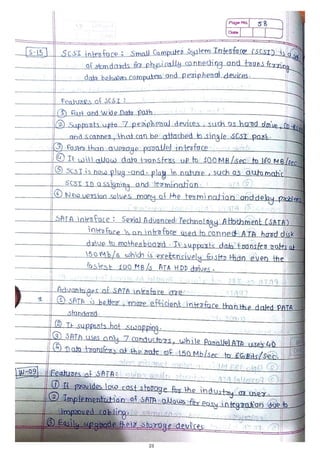 Page No. 58
Date
S-15 SCSI interface : Small Computer System Interface (SCSI) is a set
of standards for physically connecting and transferring
data between computers and peripheral devices.
Features of SCSI :
① Fast and Wide Data Path
② Supports upto 7 peripheral devices, such as hard drive,
and scanner, that can be attached to single SCSI port
③ Faster than average parallel interface
④ It will allow data transfers up to 100MB/sec to 160 MB/sec
⑤ SCSI is now plug-and-play in nature, such as automatic
SCSI ID assigning and termination
⑥ New version solves many of the termination and delay problems
SATA Interface : Serial Advanced Technology Attachment (SATA)
interface is an interface used to connect ATA hard disk
drive to motherboard. It supports data transfer rates at
150 Mb/s which is extensively faster than even the
fastest 100 MB/s ATA HDD drives.
Advantages of SATA interface are
① SATA is better, more efficient interface than the dated PATA
standard.
② It supports hot swapping.
③ SATA uses only 7 conductors, while Parallel ATA uses 40
④ Data transfers at the rate of 150 Mb/sec to 6GBits/sec.
W-09 Features of SATA :
① It provides low cost storage for the industry or user.
② Implementation of SATA allows for easy integration due to
improved cabling.
③ Easily upgrade their storage devices